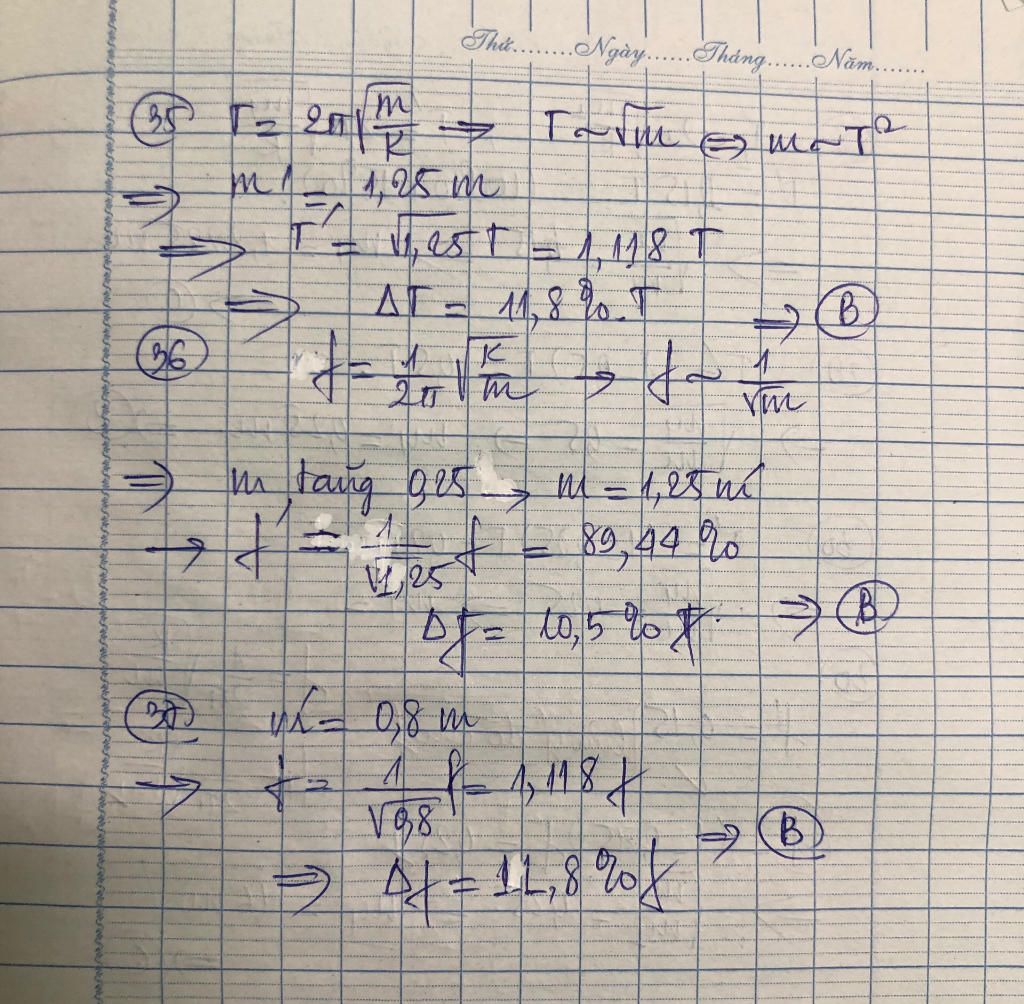 Thứ........Ngày......Tháng......Năm.......
35 T = 2π√(m/K) ⇒ T ~ √m ⇔ m ~ T²
⇒ m' = 1,25 m
⇒ T' = √1,25 T = 1,118 T
⇒ ΔT = 11,8 % T ⇒ B
36 f = 1/2π √(K/m) → f ~ 1/√m
⇒ m tăng 0,25 → m = 1,25 m'
→ f' = 1/√1,25 f = 89,44 %
Δf = 10,5 % f. ⇒ B
37 m' = 0,8 m
→ f = 1/√0,8 f = 1,118 f
⇒ B
⇒ Δf = 11,8 % f